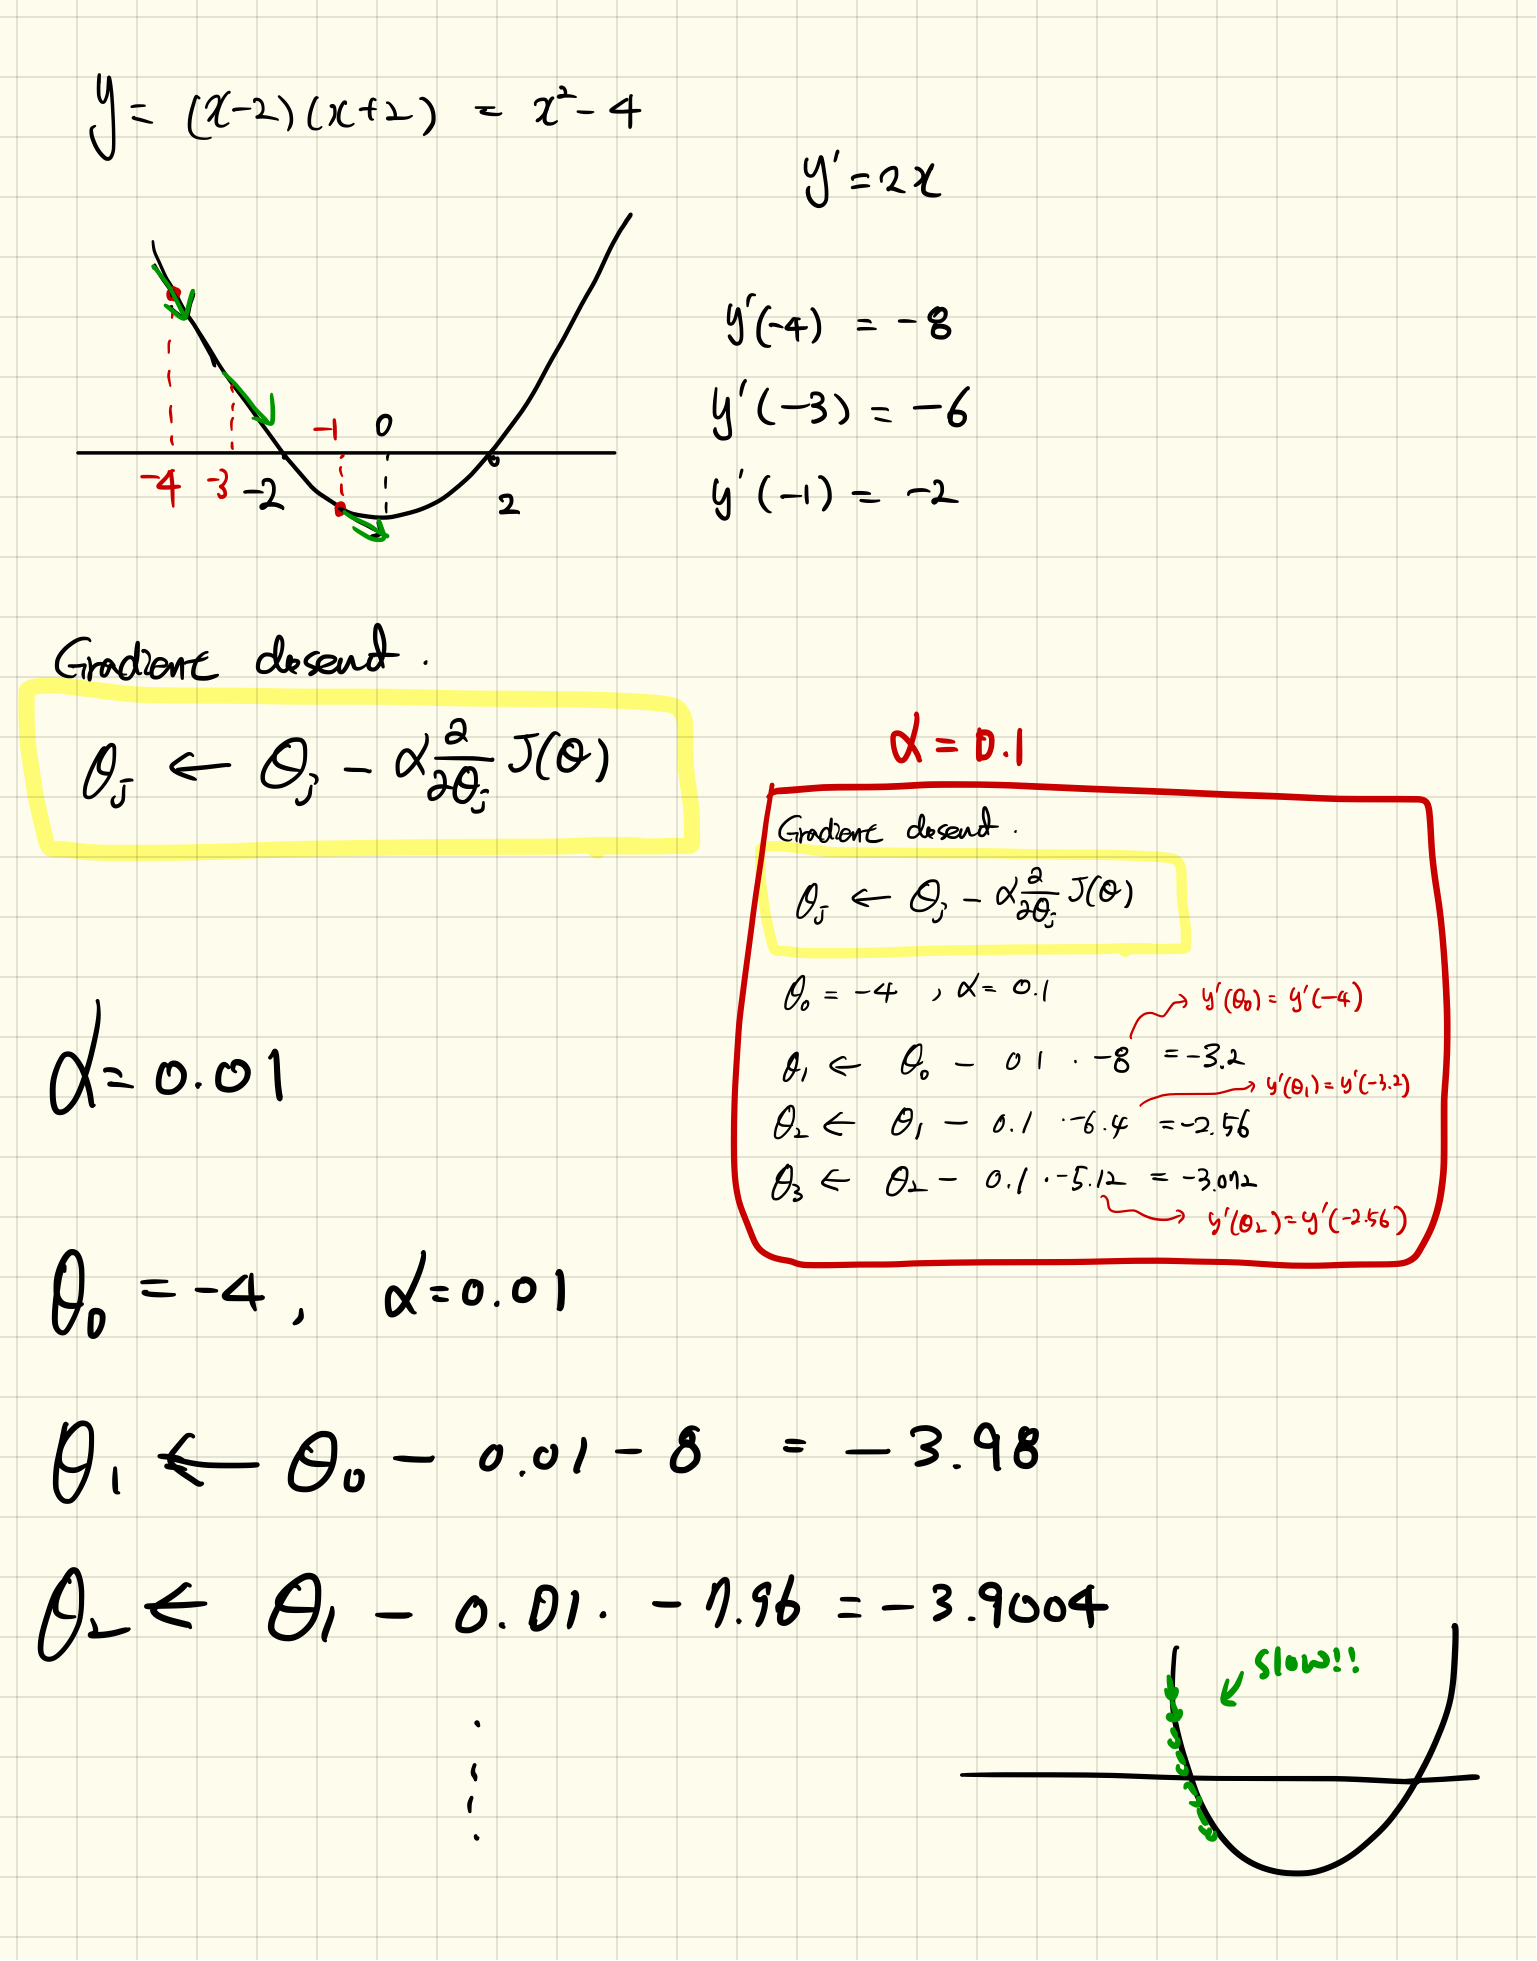 y = (x-2)(x+2) = x² - 4
y' = 2x
y'(-4) = -8
y'(-3) = -6
y'(-1) = -2
-1 0
-4 -3 -2 2
Gradient desend.
θj ← θj - α ∂/∂θj J(θ)
α = 0.1
Gradient desend.
θj ← θj - α ∂/∂θj J(θ)
θ₀ = -4 , α = 0.1
y'(θ₀) = y'(-4)
θ₁ ← θ₀ - 0 1 · -8 = -3.2
y'(θ₁) = y'(-3.2)
θ₂ ← θ₁ - 0.1 · -6.4 = -2.56
θ₃ ← θ₂ - 0.1 · -5.12 = -3.072
y'(θ₂) = y'(-2.56)
α = 0.01
θ₀ = -4 , α = 0.01
θ₁ ← θ₀ - 0.01 - 8 = -3.98
θ₂ ← θ₁ - 0.01 · -7.96 = -3.9004
slow!!